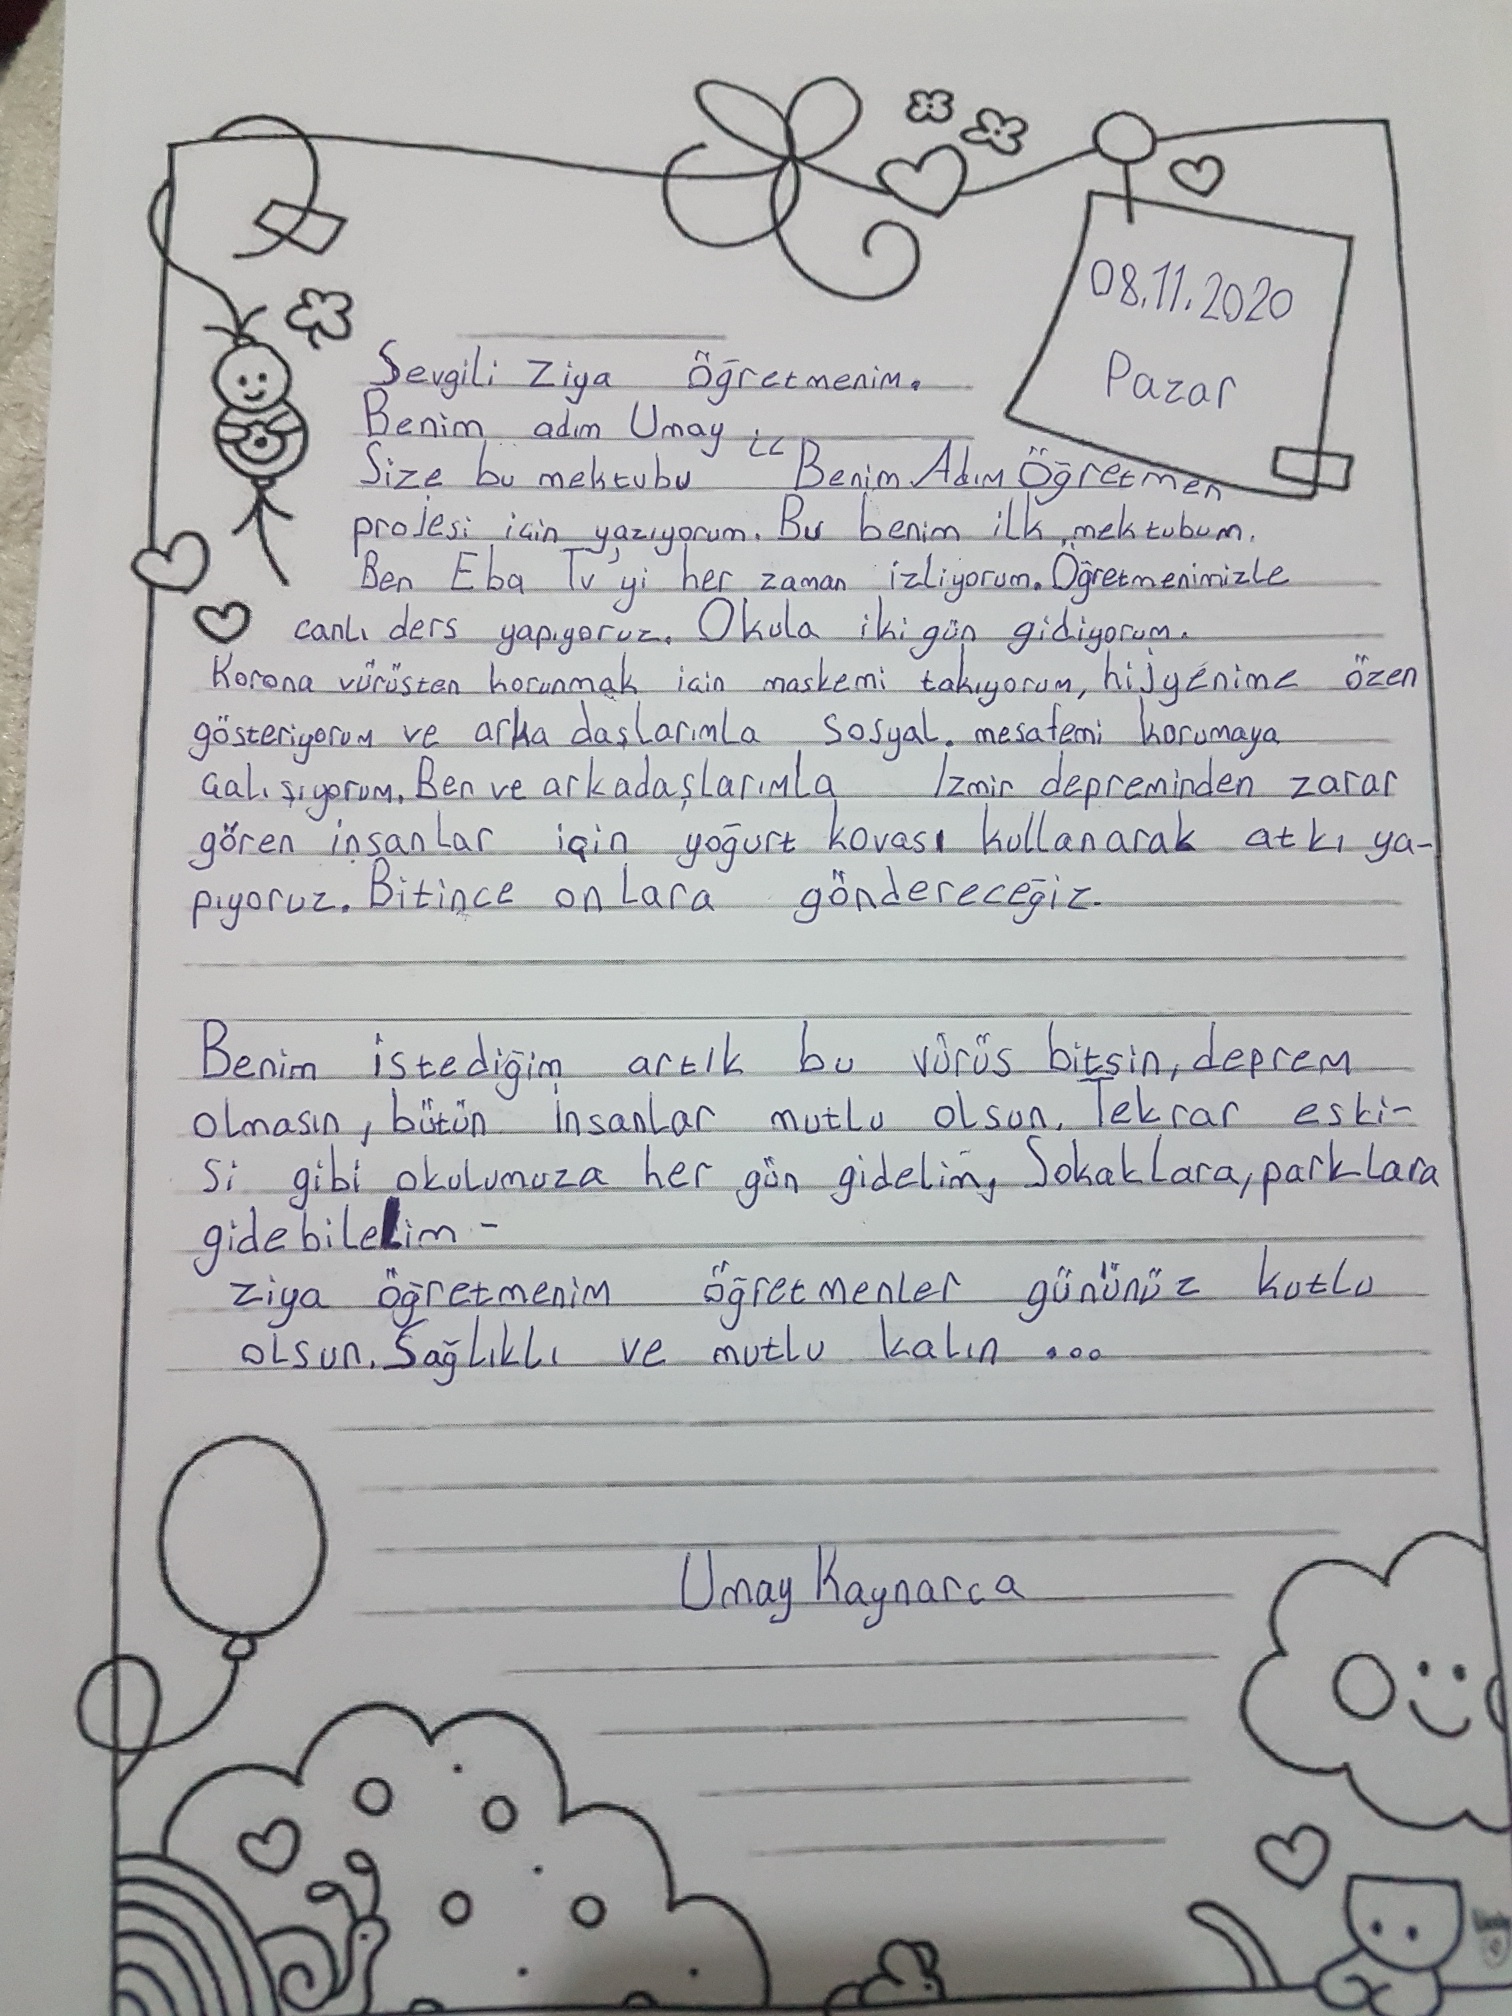 08.11.2020
Pazar
Sevgili Ziya Öğretmenim.
Benim adım Umay
Size bu mektubu "Benim Adım Öğretmen
projesi için yazıyorum. Bu benim ilk mektubum.
Ben Eba Tv'yi her zaman izliyorum. Öğretmenimizle
canlı ders yapıyoruz. Okula iki gün gidiyorum.
Korona vürüsten korunmak için maskemi takıyorum, hijyenime özen
gösteriyorum ve arkadaşlarımla sosyal mesafemi korumaya
çalışıyorum. Ben ve arkadaşlarımla İzmir depreminden zarar
gören insanlar için yoğurt kovası kullanarak atkı ya-
pıyoruz. Bitince onlara göndereceğiz.
Benim istediğim artık bu vürüs bitsin, deprem
olmasın, bütün insanlar mutlu olsun. Tekrar eski-
si gibi okulumuza her gün gidelim, Sokaklara, parklara
gidebilelim -
Ziya öğretmenim öğretmenler gününüz kutlu
olsun. Sağlıklı ve mutlu kalın ...
Umay Kaynarca